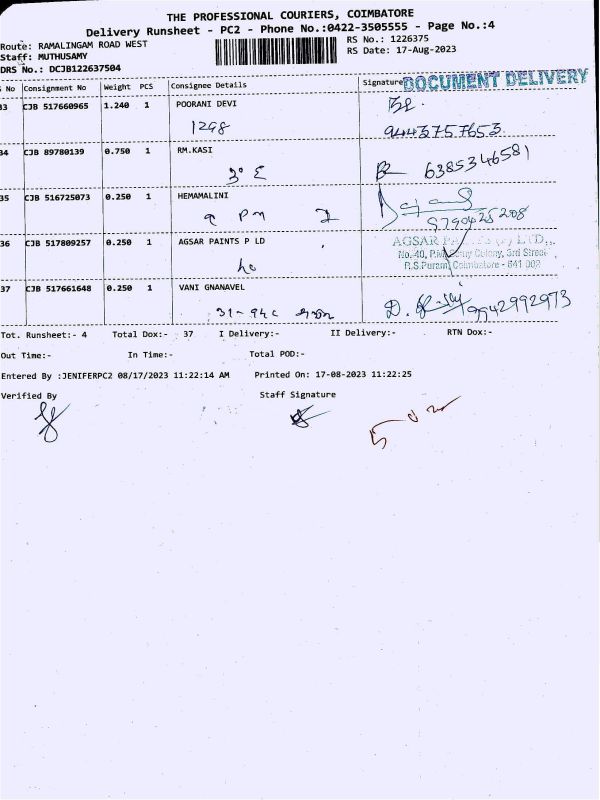 THE PROFESSIONAL COURIERS, COIMBATORE
Delivery Runsheet - PC2 - Phone No.:0422-3505555 - Page No.:4
Route: RAMALINGAM ROAD WEST
RS No.: 1226375
Staff: MUTHUSAMY
RS Date: 17-Aug-2023
DRS No.: DCJB122637504
S No Consignment No Weight PCS Consignee Details Signature
DOCUMENT DELIVERY
33 CJB 517660965 1.240 1 POORANI DEVI
1298
9443757653
34 CJB 89780139 0.750 1 RM.KASI
6385346581
35 CJB 516725073 0.250 1 HEMAMALINI
9790425208
36 CJB 517809257 0.250 1 AGSAR PAINTS P LD
AGSAR PAINTS (P) LTD.,
No.40, P.M. Samy Colony, 3rd Street
R.S.Puram, Coimbatore - 641 002
37 CJB 517661648 0.250 1 VANI GNANAVEL
9942992973
Tot. Runsheet:- 4 Total Dox:- 37 I Delivery:- II Delivery:- RTN Dox:-
Out Time:- In Time:- Total POD:-
Entered By :JENIFERPC2 08/17/2023 11:22:14 AM Printed On: 17-08-2023 11:22:25
Verified By Staff Signature